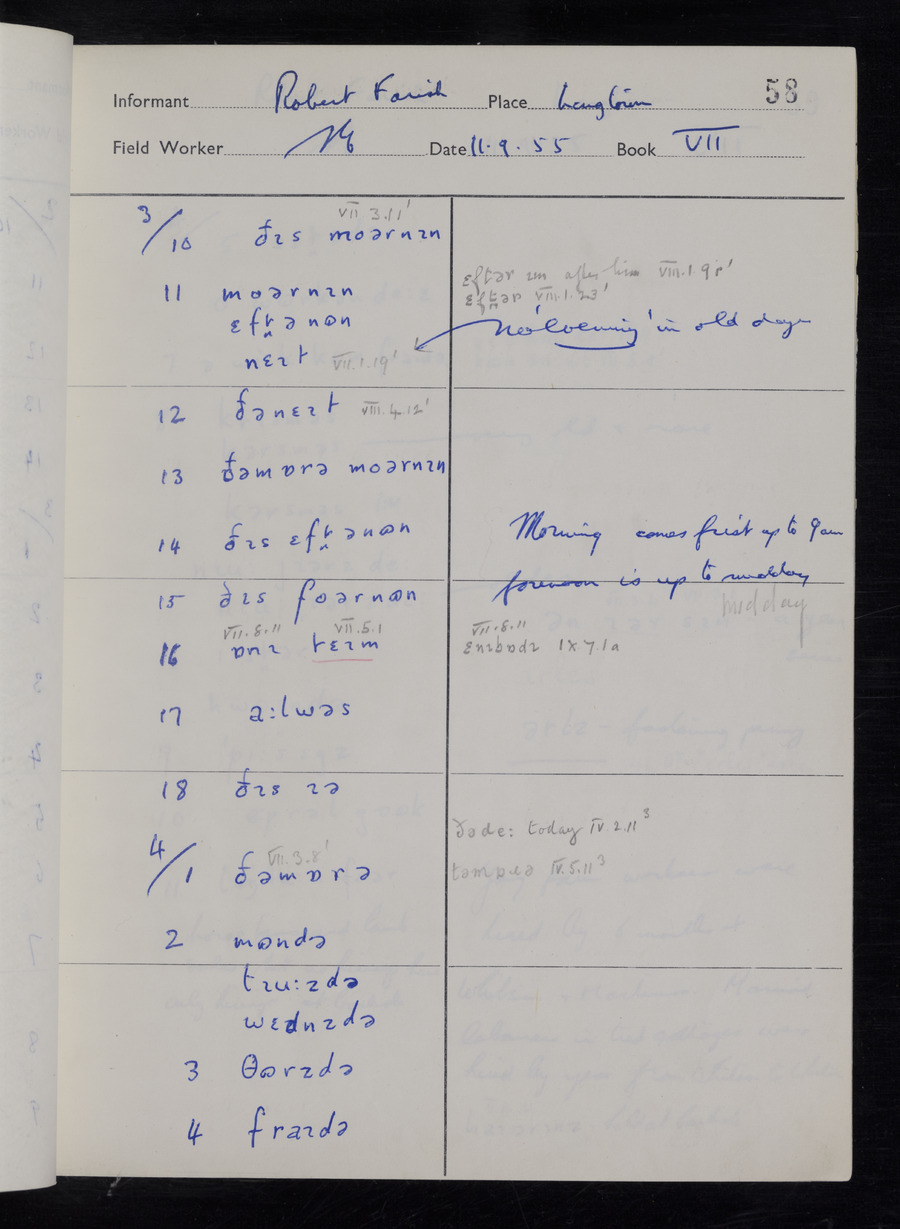 Informant Robert Farish Place Longtown 58
Field Worker Date 11.9.55 Book VII
VII.3.11'
3/10 ðɪs moərnɪn
11 moərnɪn
ɛftər ɪm after him VIII.1.9
ɛft̪ər VIII.1.23'
ɛft̪ənʊn
No 'evening' in old days
nɛɪt VII.1.19'
12 ðənɛɪt VIII.4.12'
13 ðəmɒrə moərnɪn
14 ðɪs ɛft̪ənʊn
Morning comes first up to 9am
forenoon is up to midday
midday
15 ðɪs foərnʊn
VII.8.11 VII.5.1 VII.8.11
16 ɒnɪ tɛɪm ɛnɪbɒdɪ IX.7.1a
17 a:lwəs
18 ðɪs ɪə
ðəde: today IV.2.11³
VII.3.8'
4/1 ðəmɒrə
IV.5.11³
2 mʊndə
tɪu:zdə
wɛdnzdə
3 θʊrzdə
4 fraɪdə